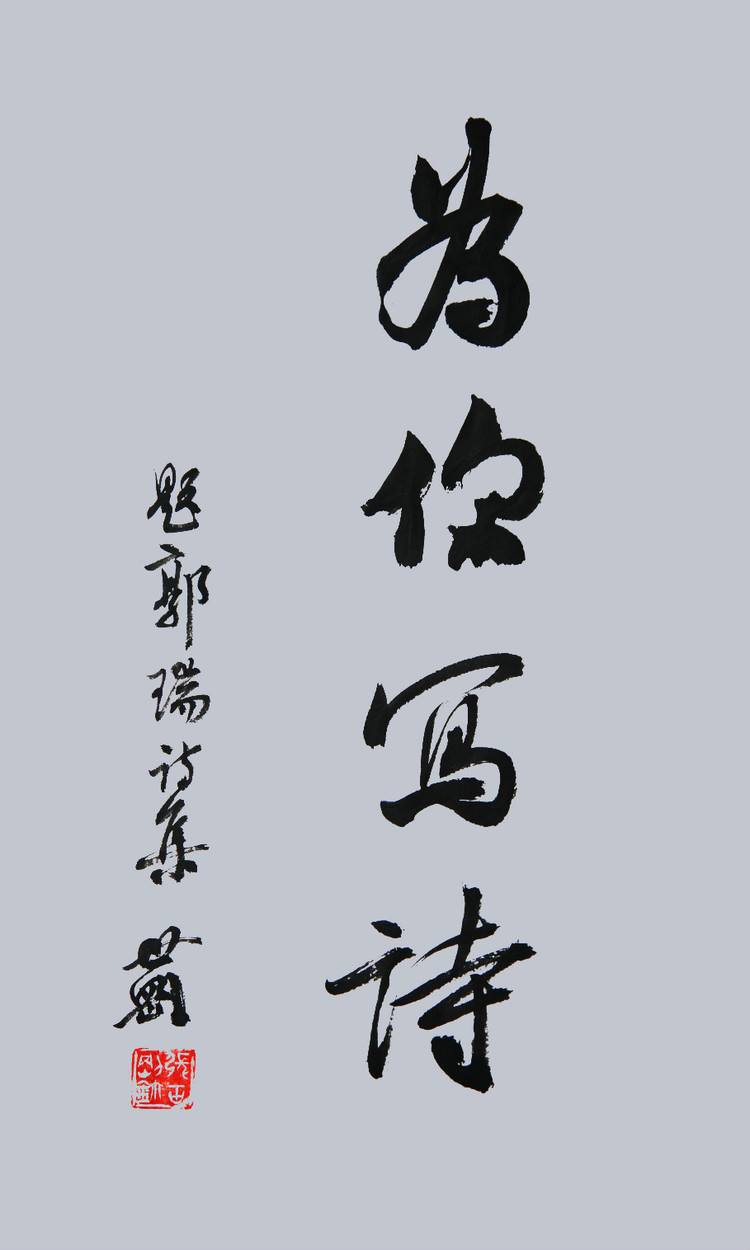 为你写詩
题郭瑞诗集